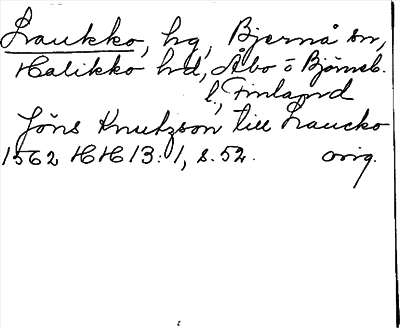 Laukko, hg, Bjernå sn,
Halikko hd, Åbo o Björneb.
l, Finland
Jöns Knutzson till Laucko
1562 HH 13:1, s. 52. orig.